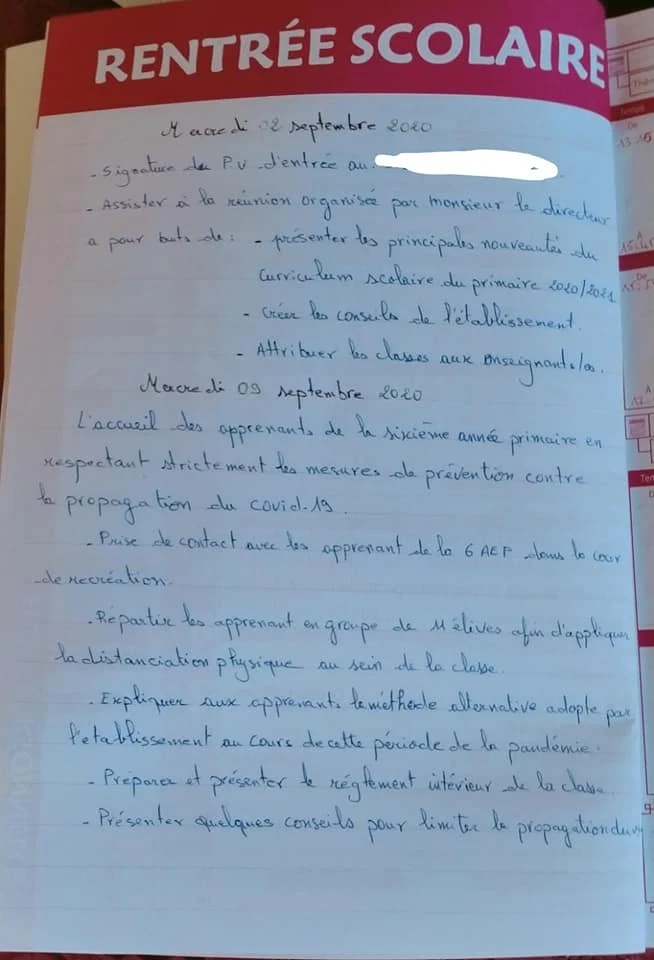 RENTRÉE SCOLAIRE
Mercredi 02 septembre 2020
- Signature du P.V d'entrée au
- Assister à la réunion organisée par monsieur le directeur
a pour buts de : - présenter les principales nouveautés du
Curriculum scolaire du primaire 2020/2021
- Créer les conseils de l'établissement.
- Attribuer les classes aux enseignants/es.
Mercredi 09 septembre 2020
L'accueil des apprenants de la sixième année primaire en
respectant strictement les mesures de prévention contre
la propagation du covid-19.
- Prise de contact avec les apprenant de la 6 AEP dans la cour
de recréation.
- Répartir les apprenant en groupe de 11 élèves afin d'appliquer
la distanciation physique au sein de la classe.
- Expliquer aux apprenants la méthode alternative adopte par
l'établissement au cours de cette période de la pandémie.
- Préparer et présenter le règlement intérieur de la classe.
- Présenter quelques conseils pour limiter la propagation du